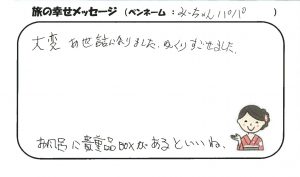 旅の幸せメッセージ (ペンネーム:みーちゃんパパ)
大変お世話になりました。ゆっくりすごせました。
お風呂に貴重品BOXがあるといいね、